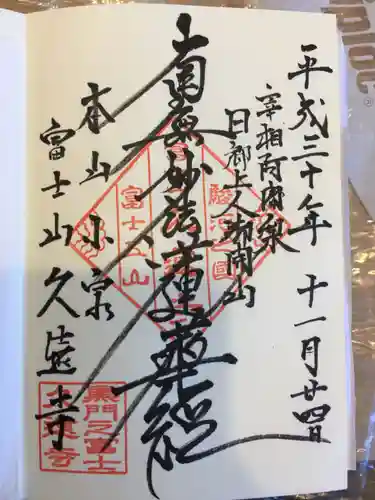 平成三十年 十一月廿四日
宰相阿闍梨
日郷上人御開山
南無妙法蓮華経
本山小泉
富士山久遠寺
駿河之國
富士五山
興門之富士
久遠寺